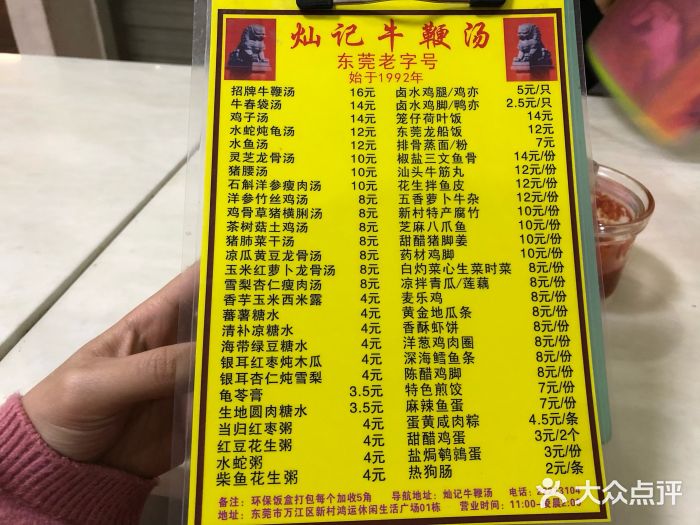 灿记牛鞭汤
东莞老字号
始于1992年
招牌牛鞭汤 16元
牛春袋汤 14元
鸡子汤 14元
水蛇炖龟汤 12元
水鱼汤 12元
灵芝龙骨汤 10元
猪腰汤 10元
石斛洋参瘦肉汤 10元
洋参竹丝鸡汤 8元
鸡骨草猪横脷汤 8元
茶树菇土鸡汤 8元
猪肺菜干汤 8元
凉瓜黄豆龙骨汤 8元
玉米红萝卜龙骨汤 8元
雪梨杏仁瘦肉汤 8元
香芋玉米西米露 4元
蕃薯糖水 4元
清补凉糖水 4元
海带绿豆糖水 4元
银耳红枣炖木瓜 4元
银耳杏仁炖雪梨 4元
龟苓膏 3.5元
生地圆肉糖水 3.5元
当归红枣粥 4元
红豆花生粥 4元
水蛇粥 4元
柴鱼花生粥 4元
卤水鸡腿/鸡亦 5元/只
卤水鸡脚/鸭亦 2.5元/只
笼仔荷叶饭 14元
东莞龙船饭 12元
排骨蒸面/粉 7元
椒盐三文鱼骨 14元/份
汕头牛筋丸 12元/份
花生拌鱼皮 12元/份
五香萝卜牛杂 12元/份
新村特产腐竹 10元/份
芝麻八爪鱼 10元/份
甜醋猪脚姜 10元/份
药材鸡脚 10元/份
白灼菜心生菜时菜 8元/份
凉拌青瓜/莲藕 8元/份
麦乐鸡 8元/份
黄金地瓜条 8元/份
香酥虾饼 8元/份
洋葱鸡肉圈 8元/份
深海鳕鱼条 8元/份
陈醋鸡脚 8元/份
特色煎饺 7元/份
麻辣鱼蛋 7元/份
蛋黄咸肉粽 4.5元/条
甜醋鸡蛋 3元/2个
盐焗鹌鹑蛋 3元/份
热狗肠 2元/条
备注：环保饭盒打包每个加收5角 导航地址：灿记牛鞭汤 电话：
地址：东莞市万江区新村鸿运休闲生活广场01栋 营业时间：11:00-凌晨2:00
大众点评